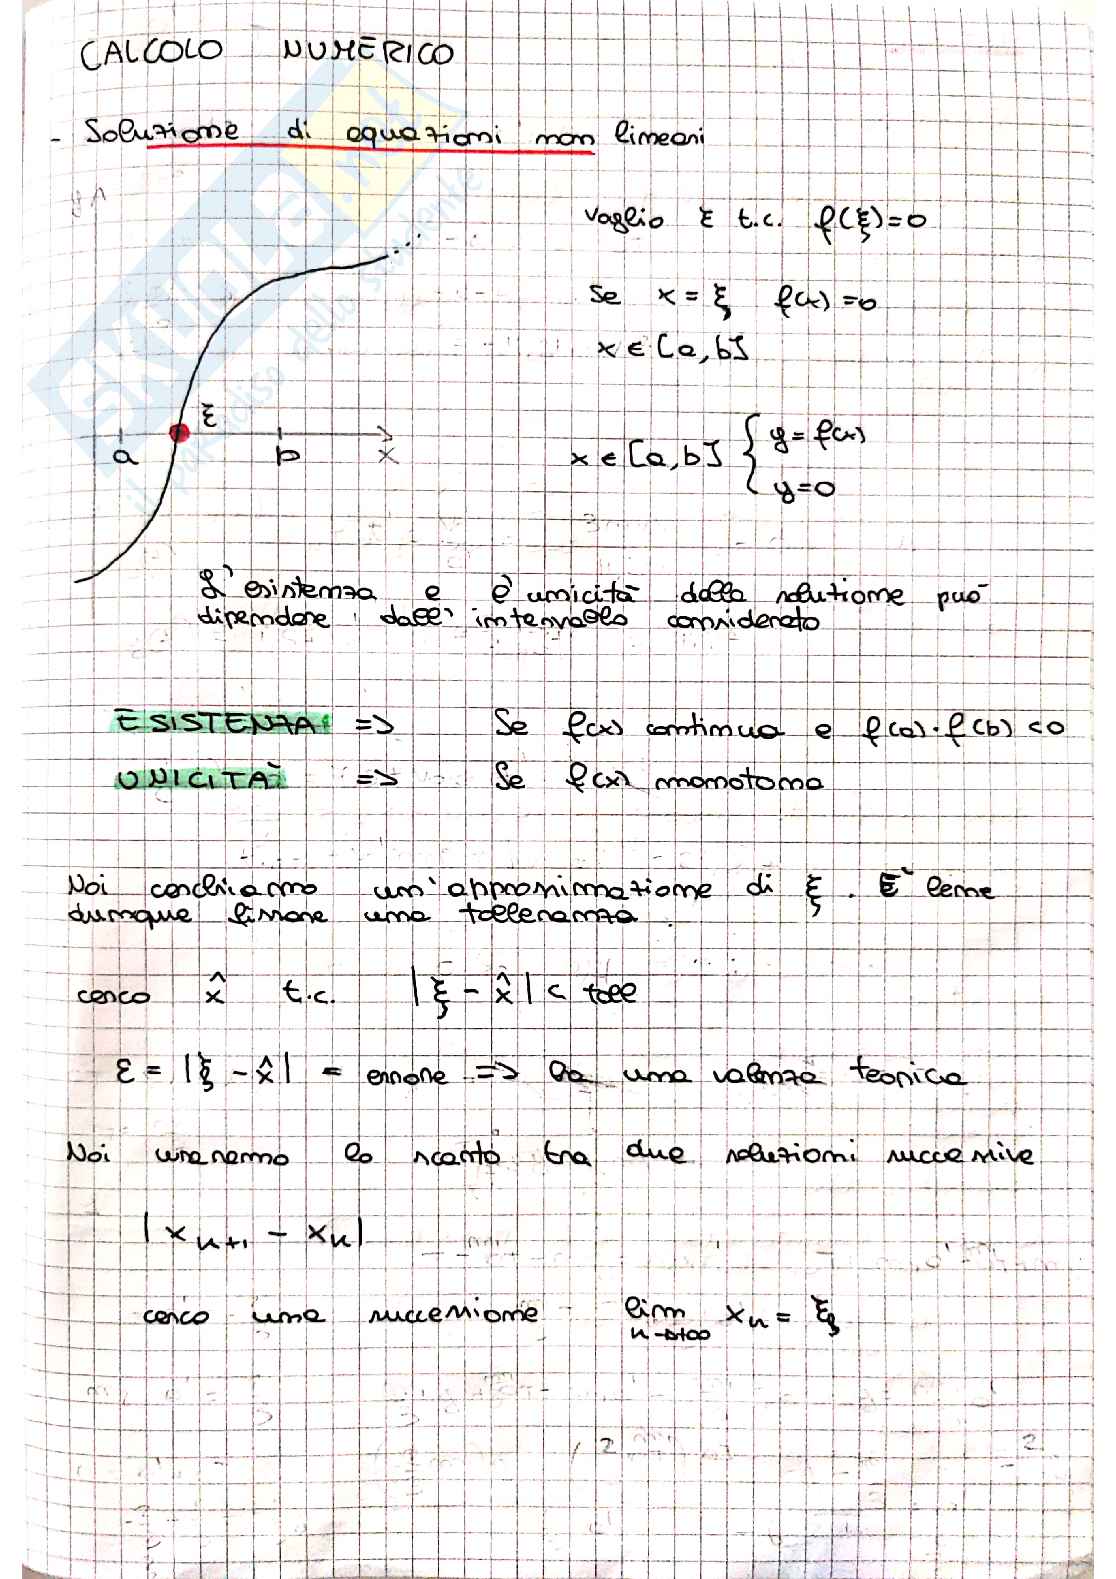 CALCOLO NUMERICO
- Soluzione di equazioni non lineari
voglio ξ t.c. f(ξ)=0
Se x = ξ f(x) = 0
x ∈ [a,b]
ξ
a b x
x ∈ [a,b] { y = f(x)
y=0
L'esistenza e l'unicità della soluzione può
dipendere dall' intervallo considerato
ESISTENZA: => Se f(x) continua e f(a)·f(b) <0
UNICITÀ => Se f(x) monotona
Noi cerchiamo un'approssimazione di ξ. È bene
dunque fissare una tolleranza.
cerco x̂ t.c. |ξ - x̂| < toll
ε = |ξ - x̂| = errore => ha una valenza teorica
Noi useremo lo scarto tra due soluzioni successive
|x_{n+1} - x_n|
cerco una successione lim x_n = ξ
n→+∞
SKUOLA.net
il paradiso dello studente